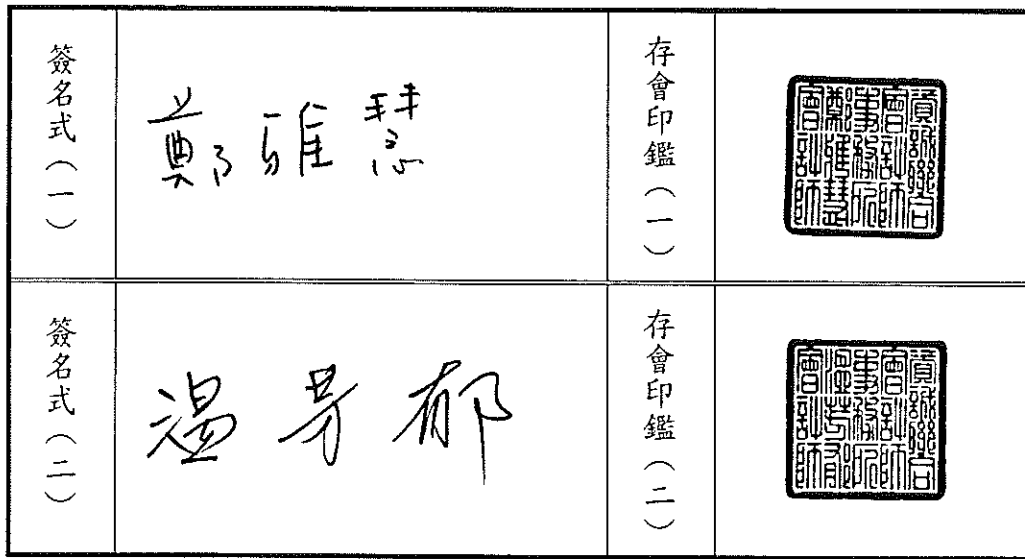 簽名式(一)
鄭雅慧
存會印鑑(一)
資誠聯合
會計師
事務所
鄭雅慧
會計師
簽名式(二)
溫芳郁
存會印鑑(二)
資誠聯合
會計師
事務所
溫芳郁
會計師